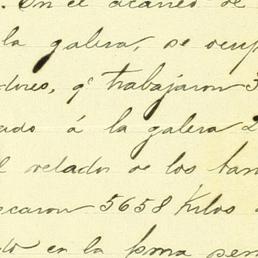 . En el acarreo de
la galera, se ocup
dores, q^e trabajaron 3
ado á la galera 2
l velador de los tan
caron 5658 Kilos
do en la pma pen